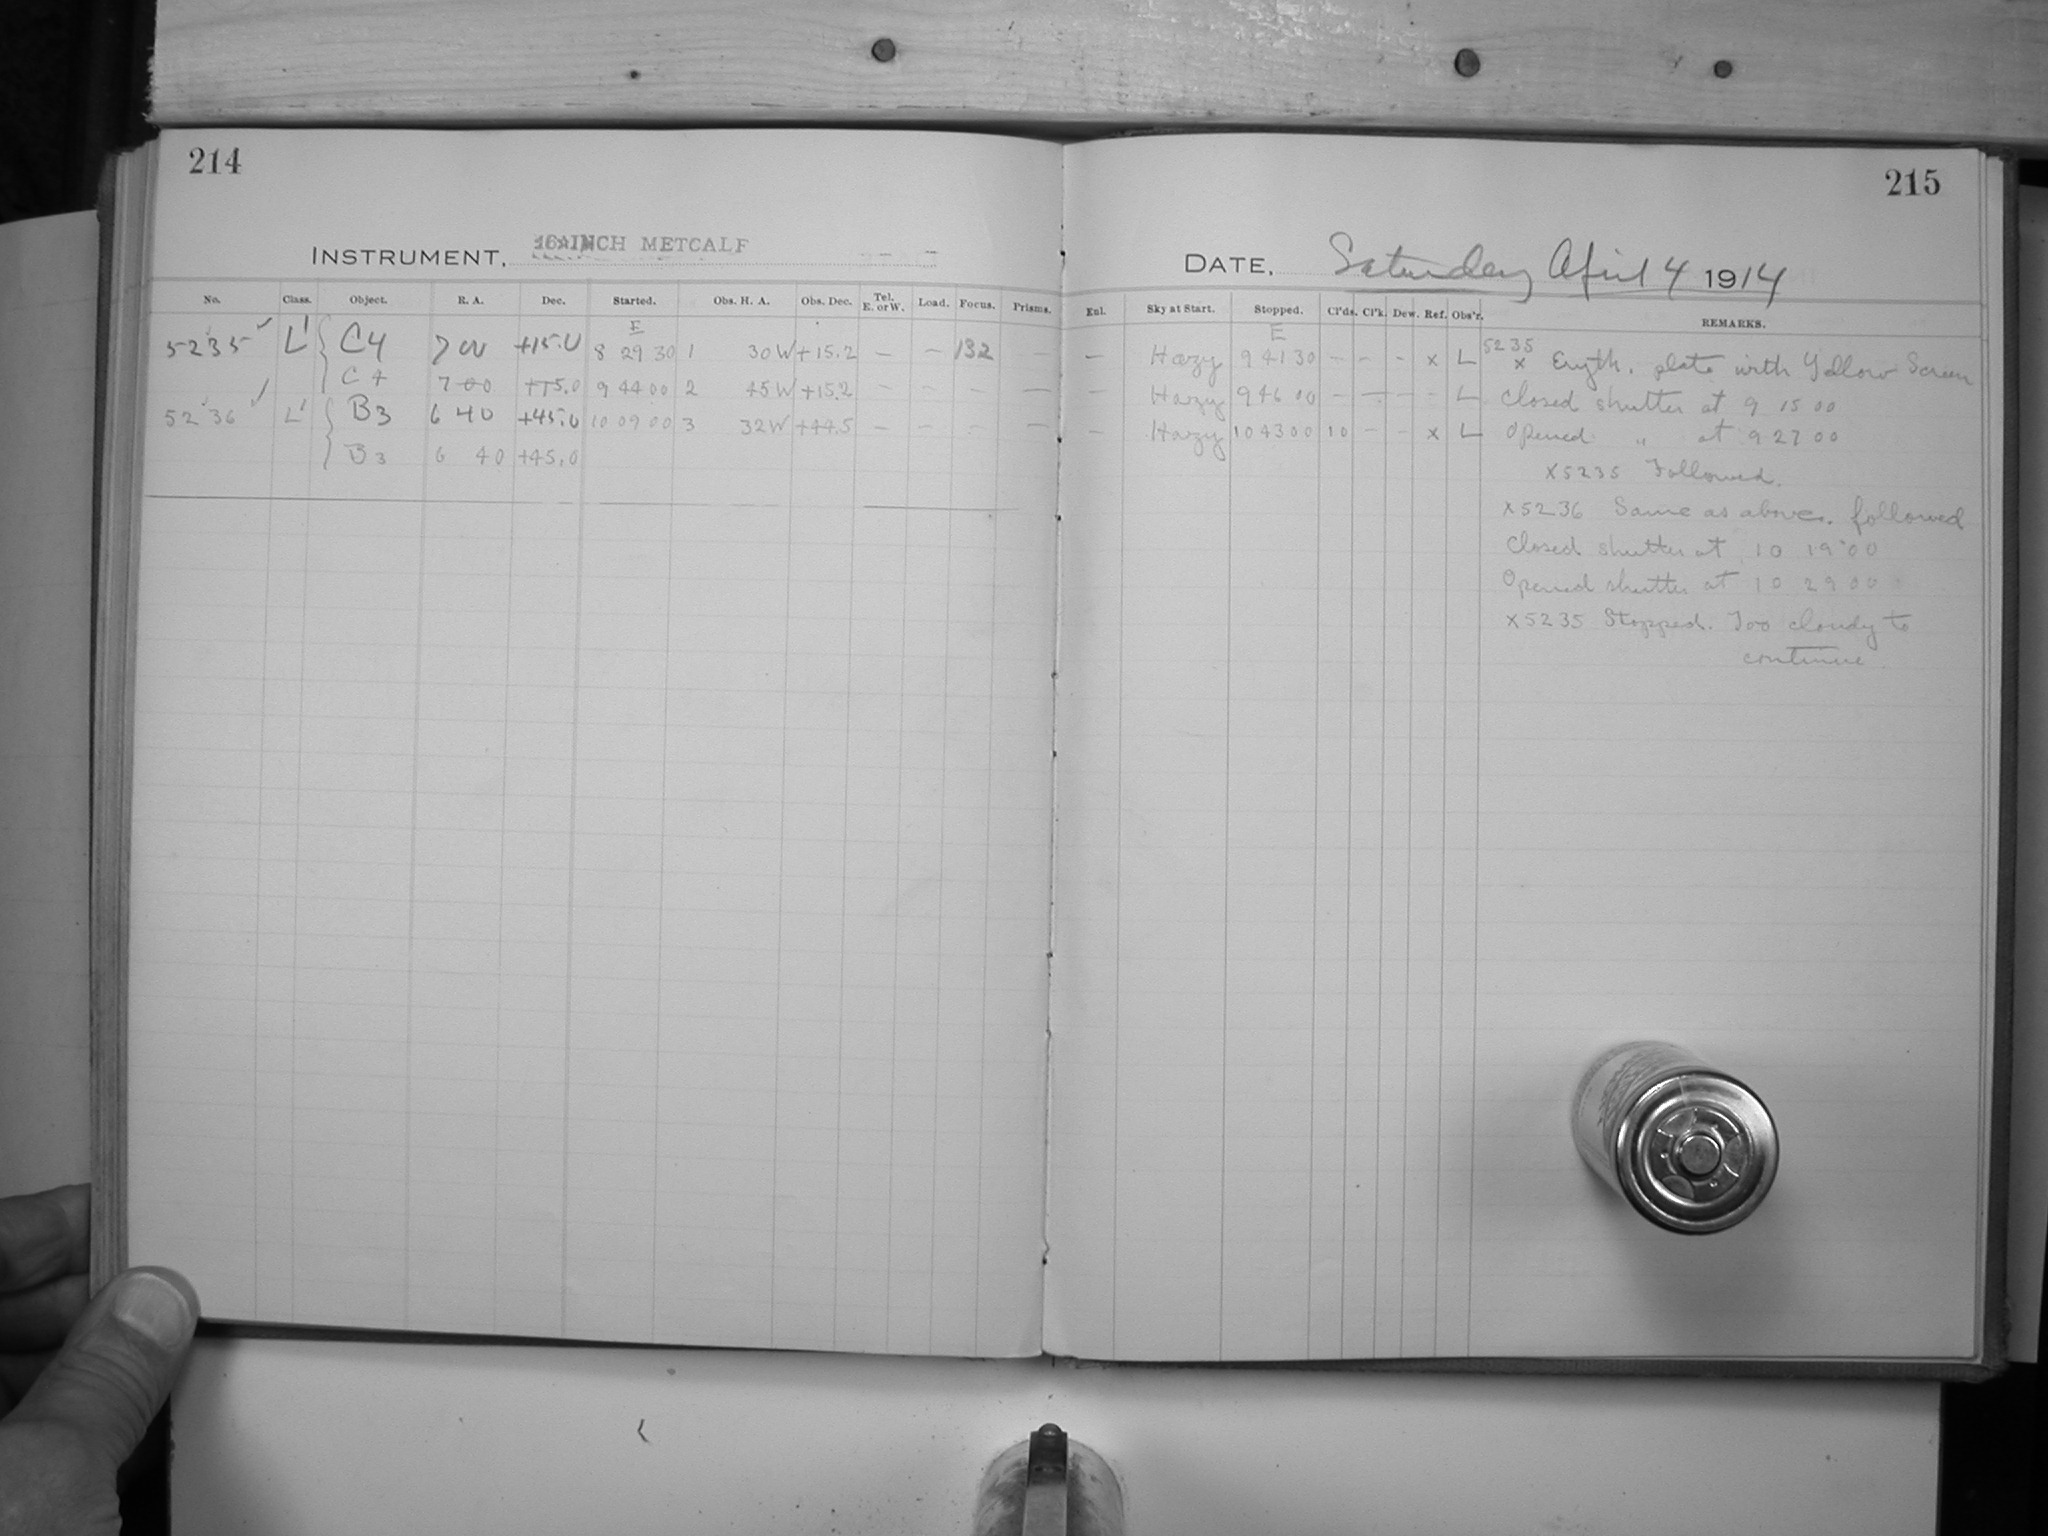 214
INSTRUMENT. 16-INCH METCALF
No. Class. Object. R. A. Dec. Started. Obs. H. A. Obs. Dec. Tel. E. or W. Load. Focus. Prisms.
E
5235 L' C4 7 00 +15.0 8 29 30 1 30W +15.2 — — 132 —
C4 7 00 +15.0 9 44 00 2 45W +15.2 — — — —
5236 L' B3 6 40 +45.0 10 09 00 3 32W +44.5 — — — —
B3 6 40 +45.0
215
DATE. Saturday April 4 1914
Enl. Sky at Start. Stopped. Cl'ds. Cl'k. Dew. Ref. Obs'r. REMARKS.
E
— Hazy 9 41 30 — — — x L 5235 x Eryth. plate with Yellow Screen
— Hazy 9 46 00 — — — — L Closed shutter at 9 15 00
— Hazy 10 43 00 10 — — x L Opened " at 9 27 00
x5235 Followed.
x5236 Same as above. followed
Closed shutter at 10 19 00
Opened shutter at 10 29 00
x5235 Stopped. Too cloudy to
continue.